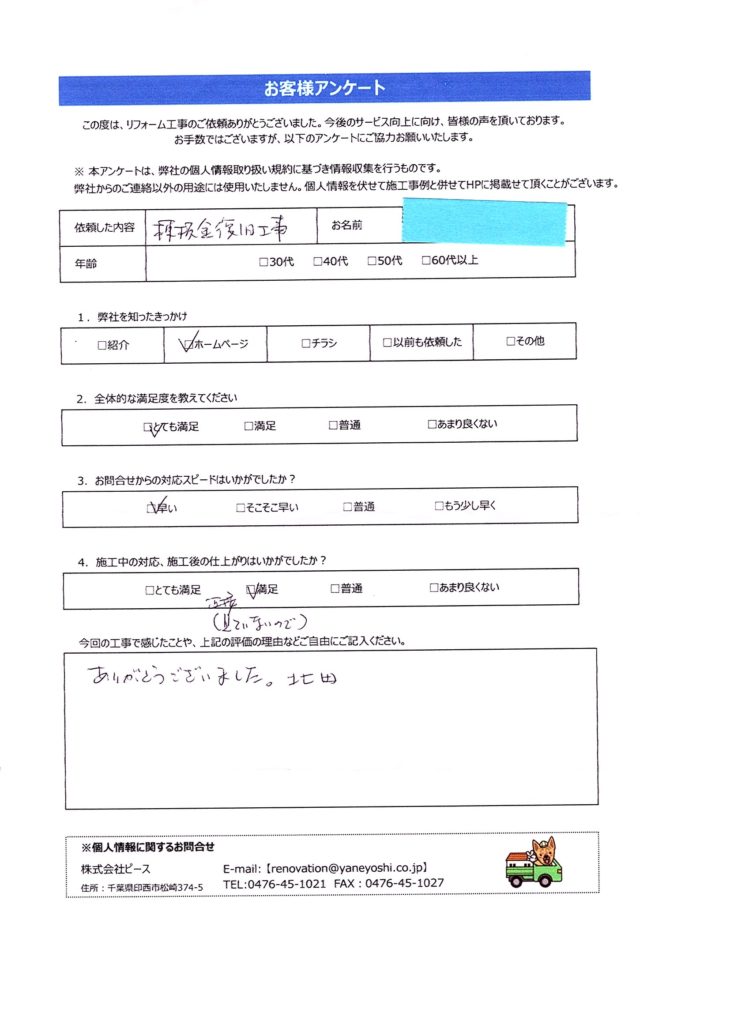 お客様アンケート
この度は、リフォーム工事のご依頼ありがとうございました。今後のサービス向上に向け、皆様の声を頂いております。
お手数ではございますが、以下のアンケートにご協力お願いいたします。
※ 本アンケートは、弊社の個人情報取り扱い規約に基づき情報収集を行うものです。
弊社からのご連絡以外の用途には使用いたしません。個人情報を伏せて施工事例と併せてHPに掲載せて頂くことがございます。
依頼した内容 棟板金復旧工事 お名前
年齢 □30代 □40代 □50代 □60代以上
1. 弊社を知ったきっかけ
□紹介 ☑ホームページ □チラシ □以前も依頼した □その他
2. 全体的な満足度を教えてください
☑とても満足 □満足 □普通 □あまり良くない
3. お問合せからの対応スピードはいかがでしたか？
☑早い □そこそこ早い □普通 □もう少し早く
4. 施工中の対応、施工後の仕上がりはいかがでしたか？
□とても満足 ☑満足 □普通 □あまり良くない
直接
(見ていないので)
今回の工事で感じたことや、上記の評価の理由などご自由にご記入ください。
ありがとうございました。北田
※個人情報に関するお問合せ
株式会社ピース E-mail:【renovation@yaneyoshi.co.jp】
住所：千葉県印西市松崎374-5 TEL:0476-45-1021 FAX：0476-45-1027